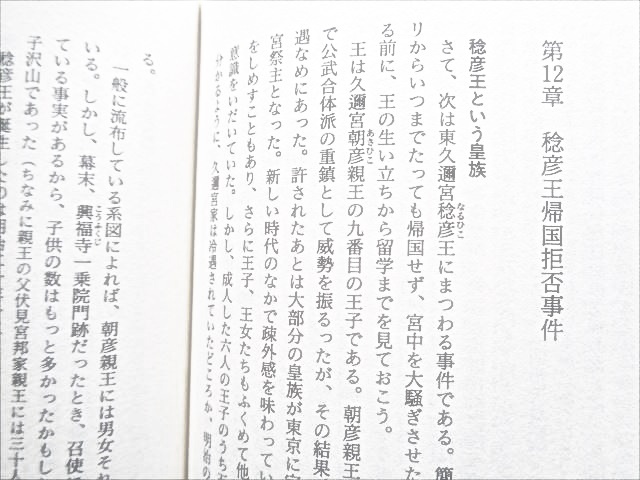 第12章 稔彦王帰国拒否事件
稔彦王という皇族
さて、次は東久邇宮稔彦王にまつわる事件である。簡
なるひこ
リからいつまでたっても帰国せず、宮中を大騒ぎさせた
る前に、王の生い立ちから留学までを見ておこう。
王は久邇宮朝彦親王の九番目の王子である。朝彦親王
あさひこ
で公武合体派の重鎮として威勢を振るったが、その結果
遇なめにあった。許されたあとは大部分の皇族が東京に
宮祭主となった。新しい時代のなかで疎外感を味わってい
をしめすこともあり、さらに王子、王女たちもふくめて他
意識をいだいていた。しかし、成人した六人の王子のうち
分かるように、久邇宮家は冷遇されていたどころか、明治の
る。
一般に流布している系図によれば、朝彦親王には男女それ
いる。しかし、幕末、興福寺一乗院門跡だったとき、召使
こうふくじ
ている事実があるから、子供の数はもっと多かったかもし
子沢山であった（ちなみに親王の父伏見宮邦家親王には三十人
稔彦王が誕生したのは明治二十